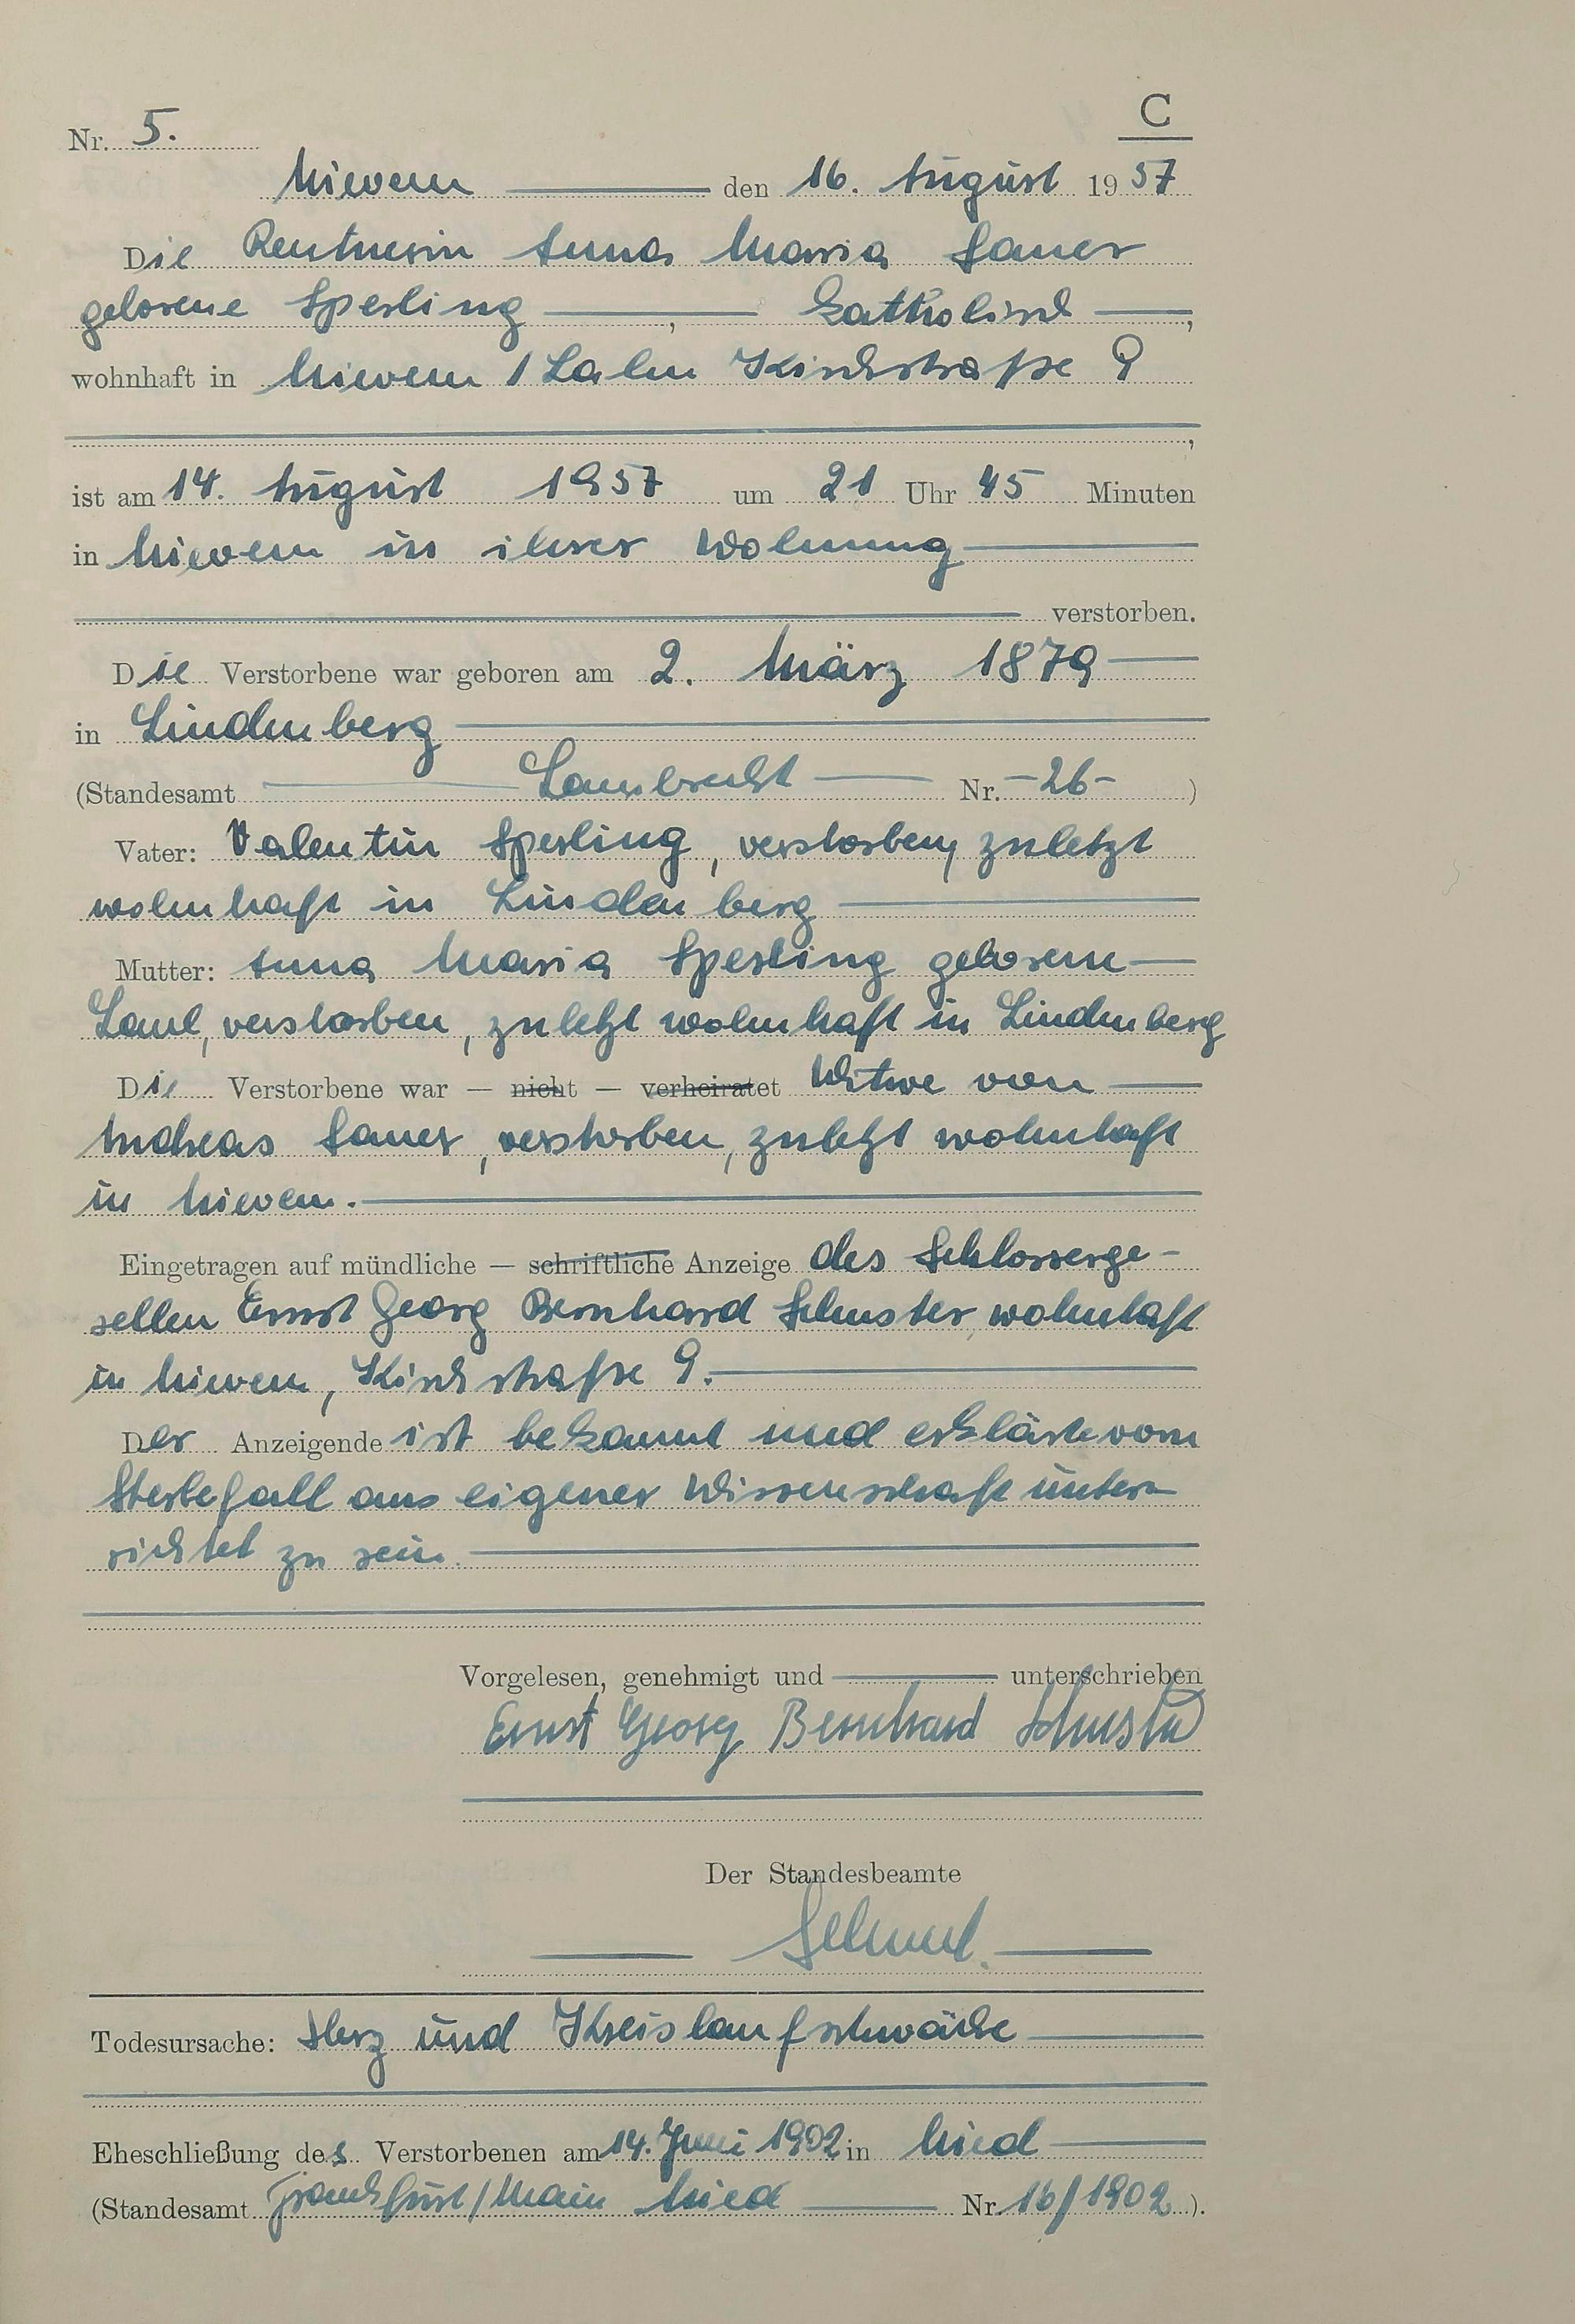 C
Nr. 5.
Nievern den 16. August 1957
Die Rentnerin Anna Maria Sauer
geborene Sperling, katholisch,
wohnhaft in Nievern / Lahn Kirchstraße 9
,
ist am 14. August 1957 um 21 Uhr 45 Minuten
in Nievern in ihrer Wohnung
verstorben.
Die Verstorbene war geboren am 2. März 1879
in Lindenberg
(Standesamt Lambrecht Nr. -26- )
Vater: Valentin Sperling, verstorben, zuletzt
wohnhaft in Lindenberg
Mutter: Anna Maria Sperling geborene
verstorben, zuletzt wohnhaft in Lindenberg
Die Verstorbene war — nicht — verheiratet Witwe von
Andreas Sauer, verstorben, zuletzt wohnhaft
in Nievern.
Eingetragen auf mündliche — schriftliche Anzeige des Schlosserge-
sellen Ernst Georg Bernhard Schuster, wohnhaft
in Nievern, Kirchstraße 9.
Der Anzeigende ist bekannt und erklärte vom
Sterbefall aus eigener Wissenschaft unter-
richtet zu sein.
Vorgelesen, genehmigt und unterschrieben
Ernst Georg Bernhard Schuster
Der Standesbeamte
Todesursache: Herz und Kreislaufschwäche
Eheschließung des Verstorbenen am 14. Juni 1902 in Nied
(Standesamt Frankfurt/Main Nied Nr. 16/1902 ).